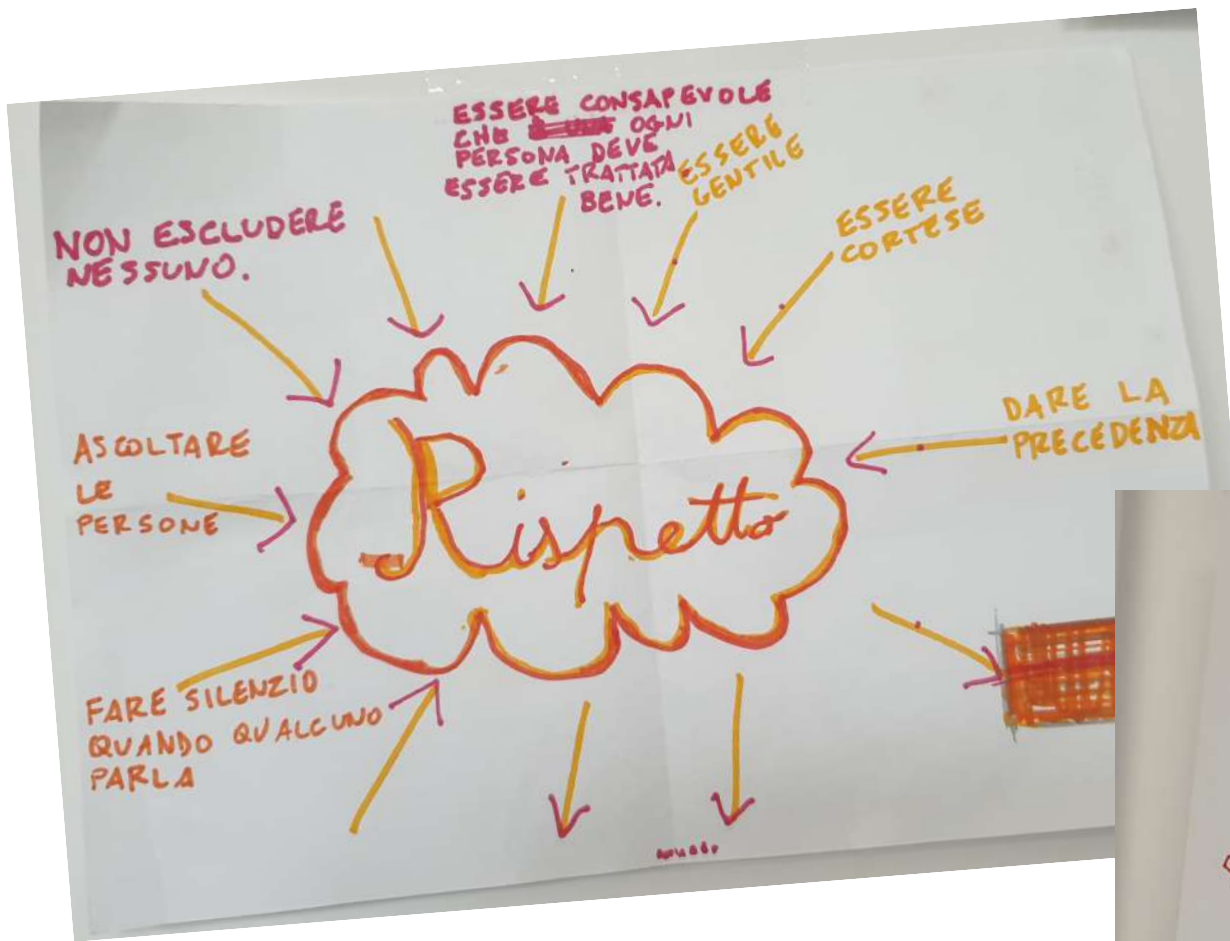 ESSERE CONSAPEVOLE
CHE OGNI
PERSONA DEVE
ESSERE TRATTATA
BENE.
ESSERE
GENTILE
ESSERE
CORTESE
NON ESCLUDERE
NESSUNO.
DARE LA
PRECEDENZA
ASCOLTARE
LE
PERSONE
Rispetto
FARE SILENZIO
QUANDO QUALCUNO
PARLA